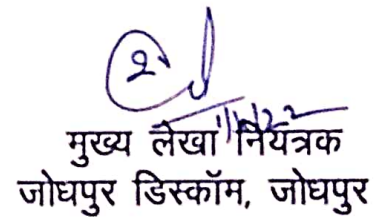 मुख्य लेखा नियंत्रक
जोधपुर डिस्कॉम, जोधपुर